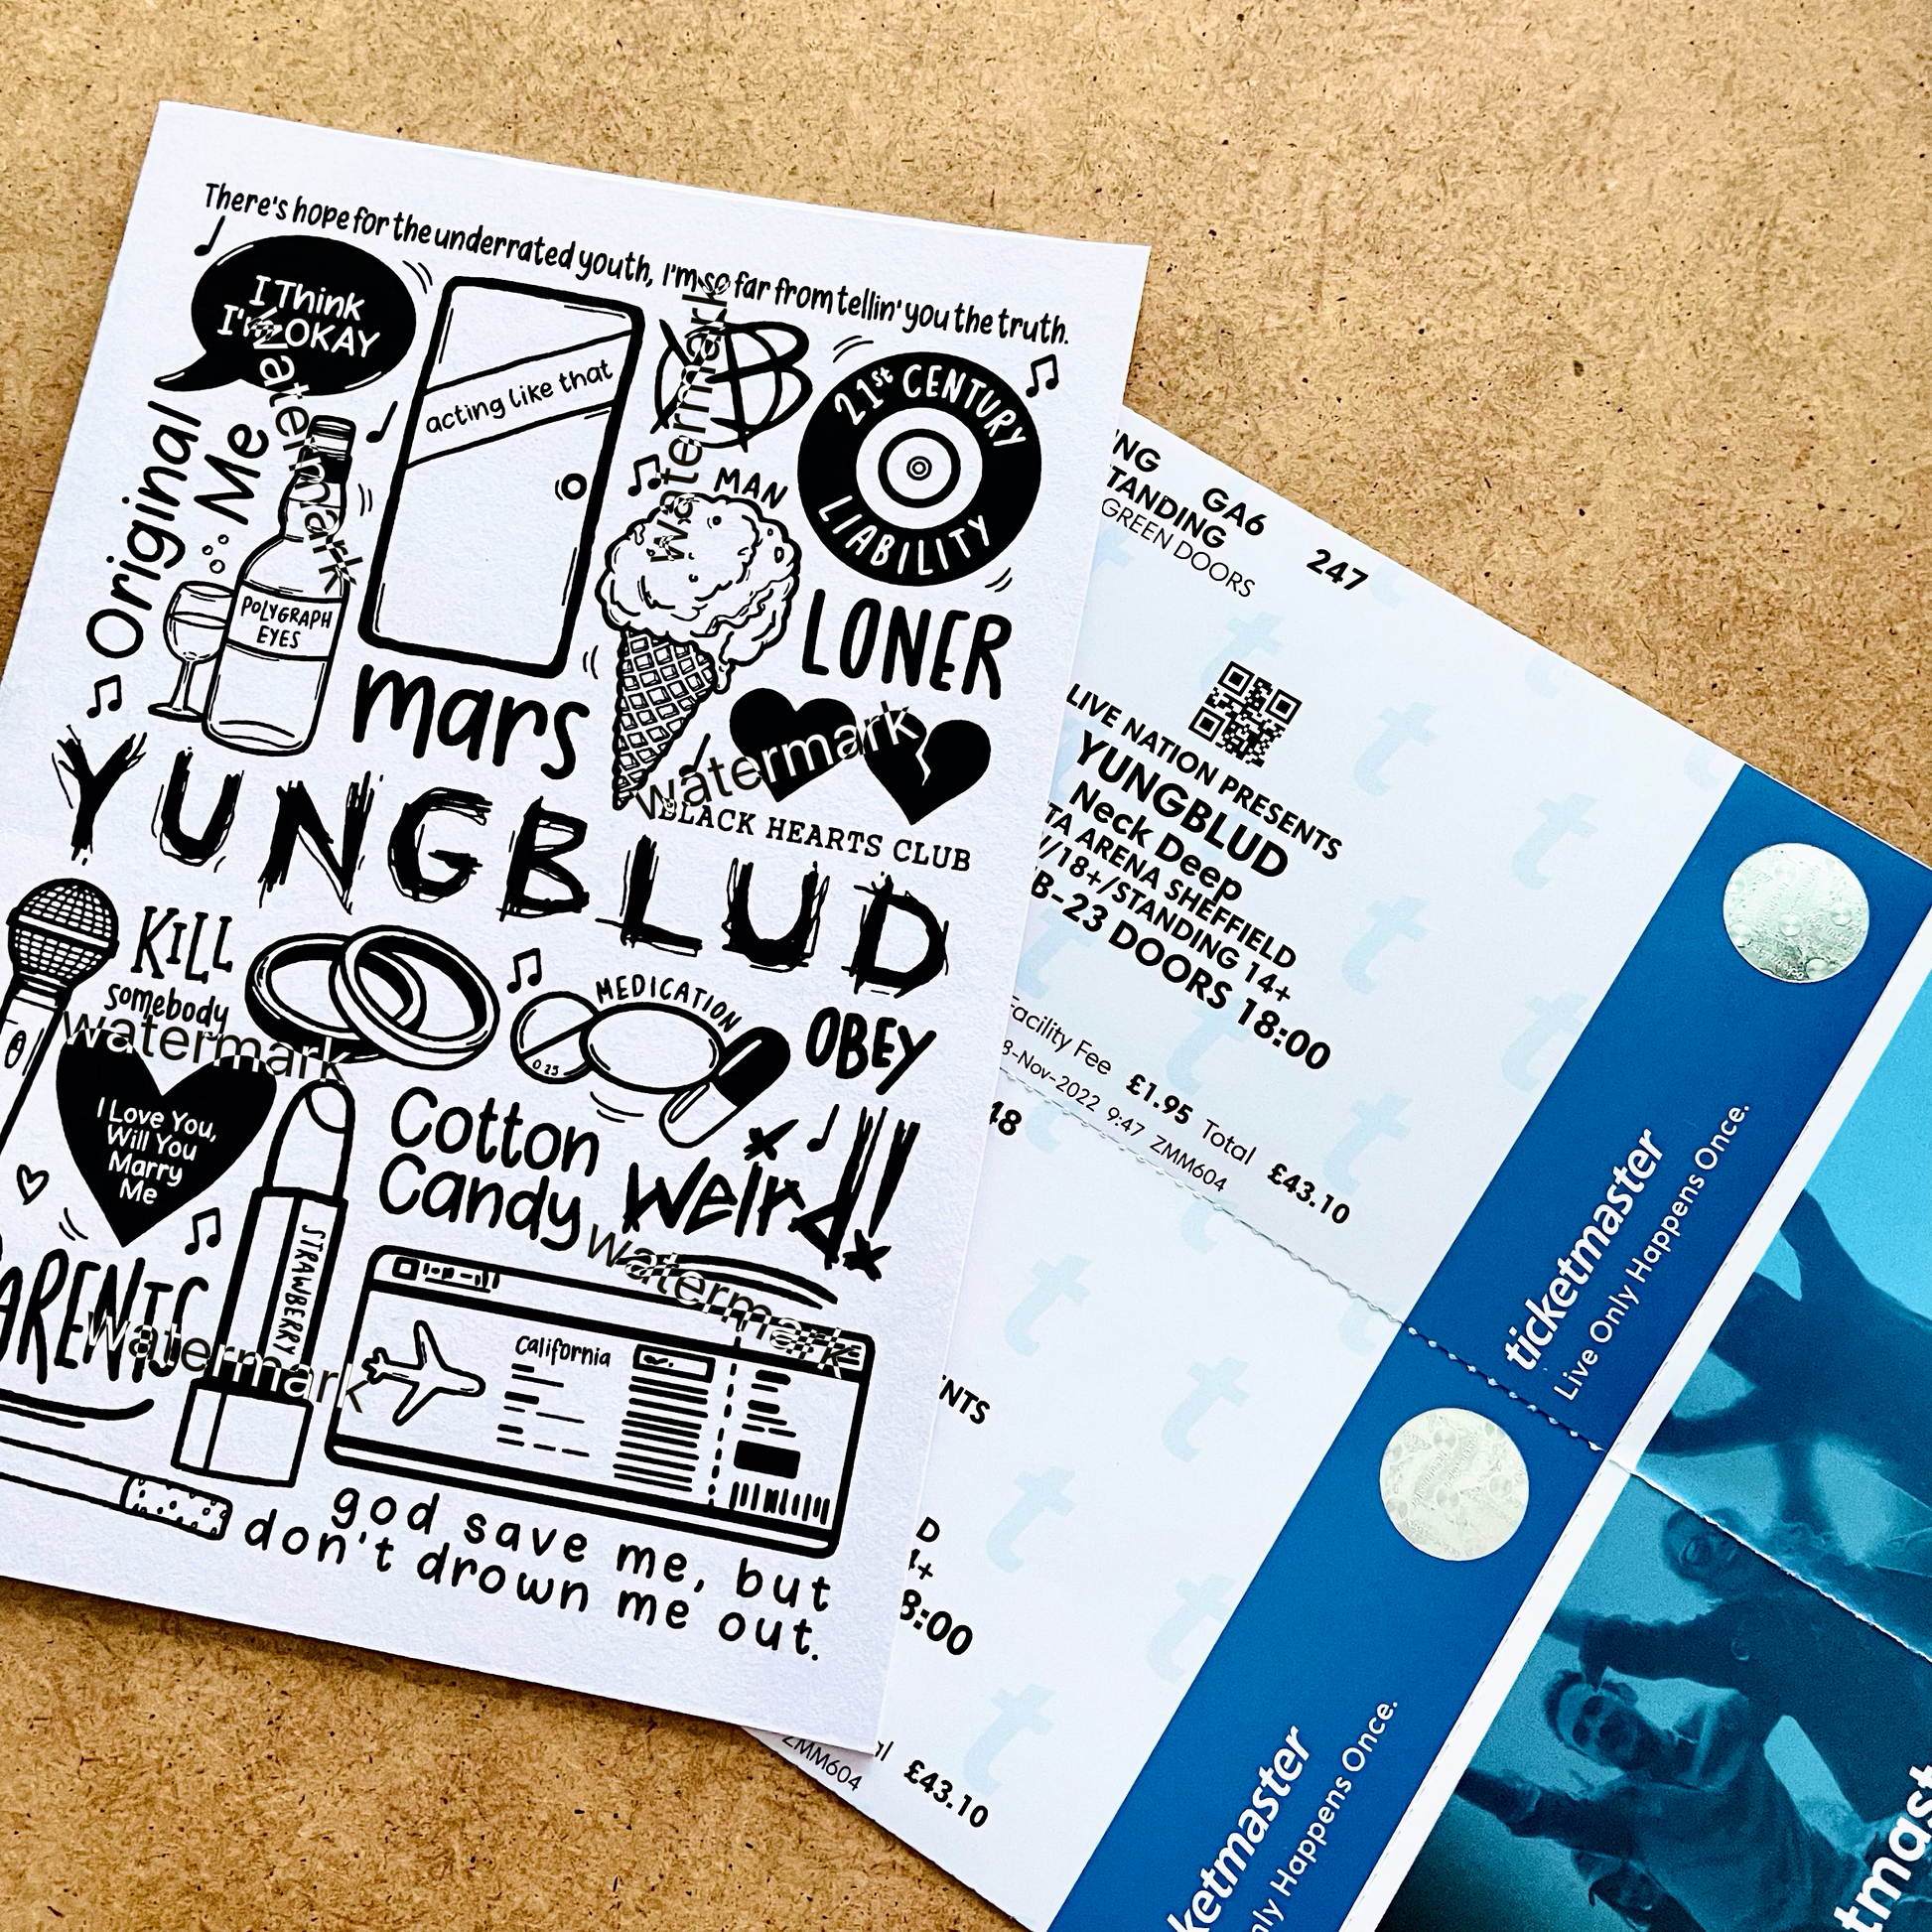 There's hope for the underrated youth, I'm so far from tellin' you the truth.
I Think
I'm OKAY
acting like that
21st CENTURY
LIABILITY
MAN
Original
Me
POLYGRAPH
EYES
LONER
mars
BLACK HEARTS CLUB
YUNGBLUD
KILL
somebody
MEDICATION
0.25
OBEY
I Love You,
Will You
Marry
Me
Cotton
Candy
Weird!
PARENTS
STRAWBERRY
California
god save me, but
don't drown me out.
watermark
watermark
watermark
watermark
watermark
watermark
GA6
247
TANDING
GREEN DOORS
LIVE NATION PRESENTS
YUNGBLUD
Neck Deep
TA ARENA SHEFFIELD
/18+/STANDING 14+
B-23 DOORS 18:00
Facility Fee £1.95 Total £43.10
8-Nov-2022 9:47 ZMM604
48
NTS
D
4+
8:00
al £43.10
ZMM604
ticketmaster
Live Only Happens Once.
ketmaster
nly Happens Once.
tmas